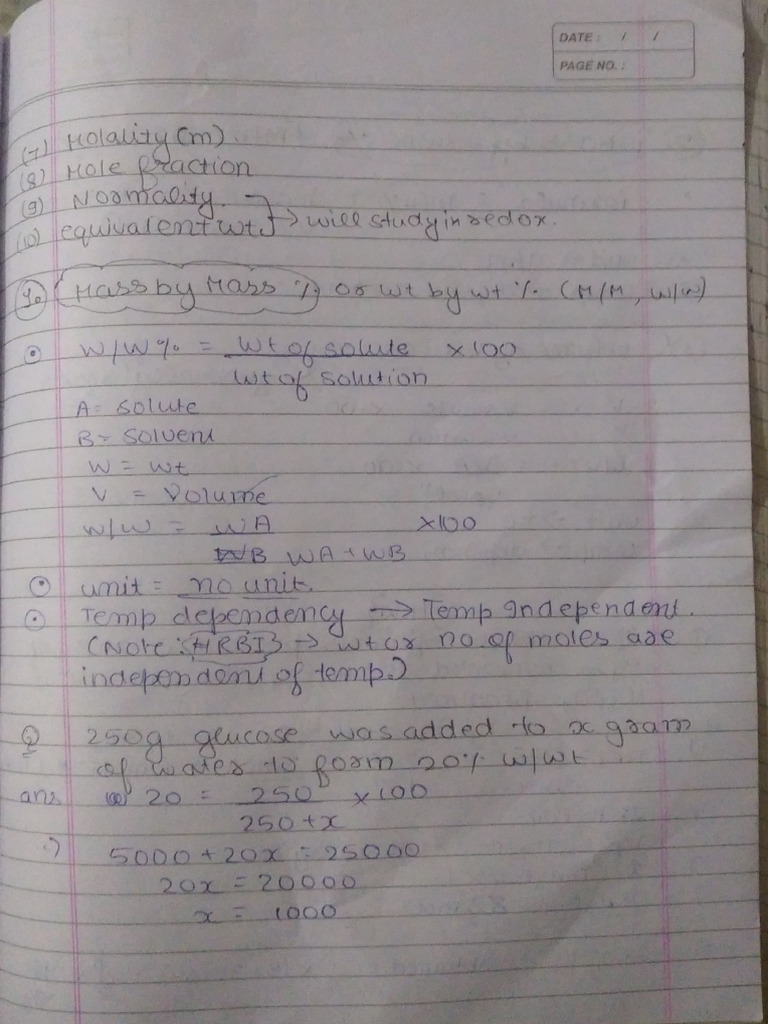 DATE: / /
PAGE NO.:
(7) Molality (m)
(8) Mole fraction
(9) Normality.
(10) equivalent wt. } → will study in redox.
1. Mass by Mass % or wt by wt % (M/M, w/w)
W/W% = Wt of solute × 100
Wt of solution
A = solute
B = solvent
W = wt
V = Volume
W/W = WA ×100
WA + WB
unit = no unit.
Temp dependency → Temp Independent.
(Note: → wt or no of moles are
independent of temp.)
Q 250g glucose was added to x gram
of water to form 20% w/wt
ans 20 = 250 ×100
250+x
5000 + 20x = 25000
20x = 20000
x = 1000